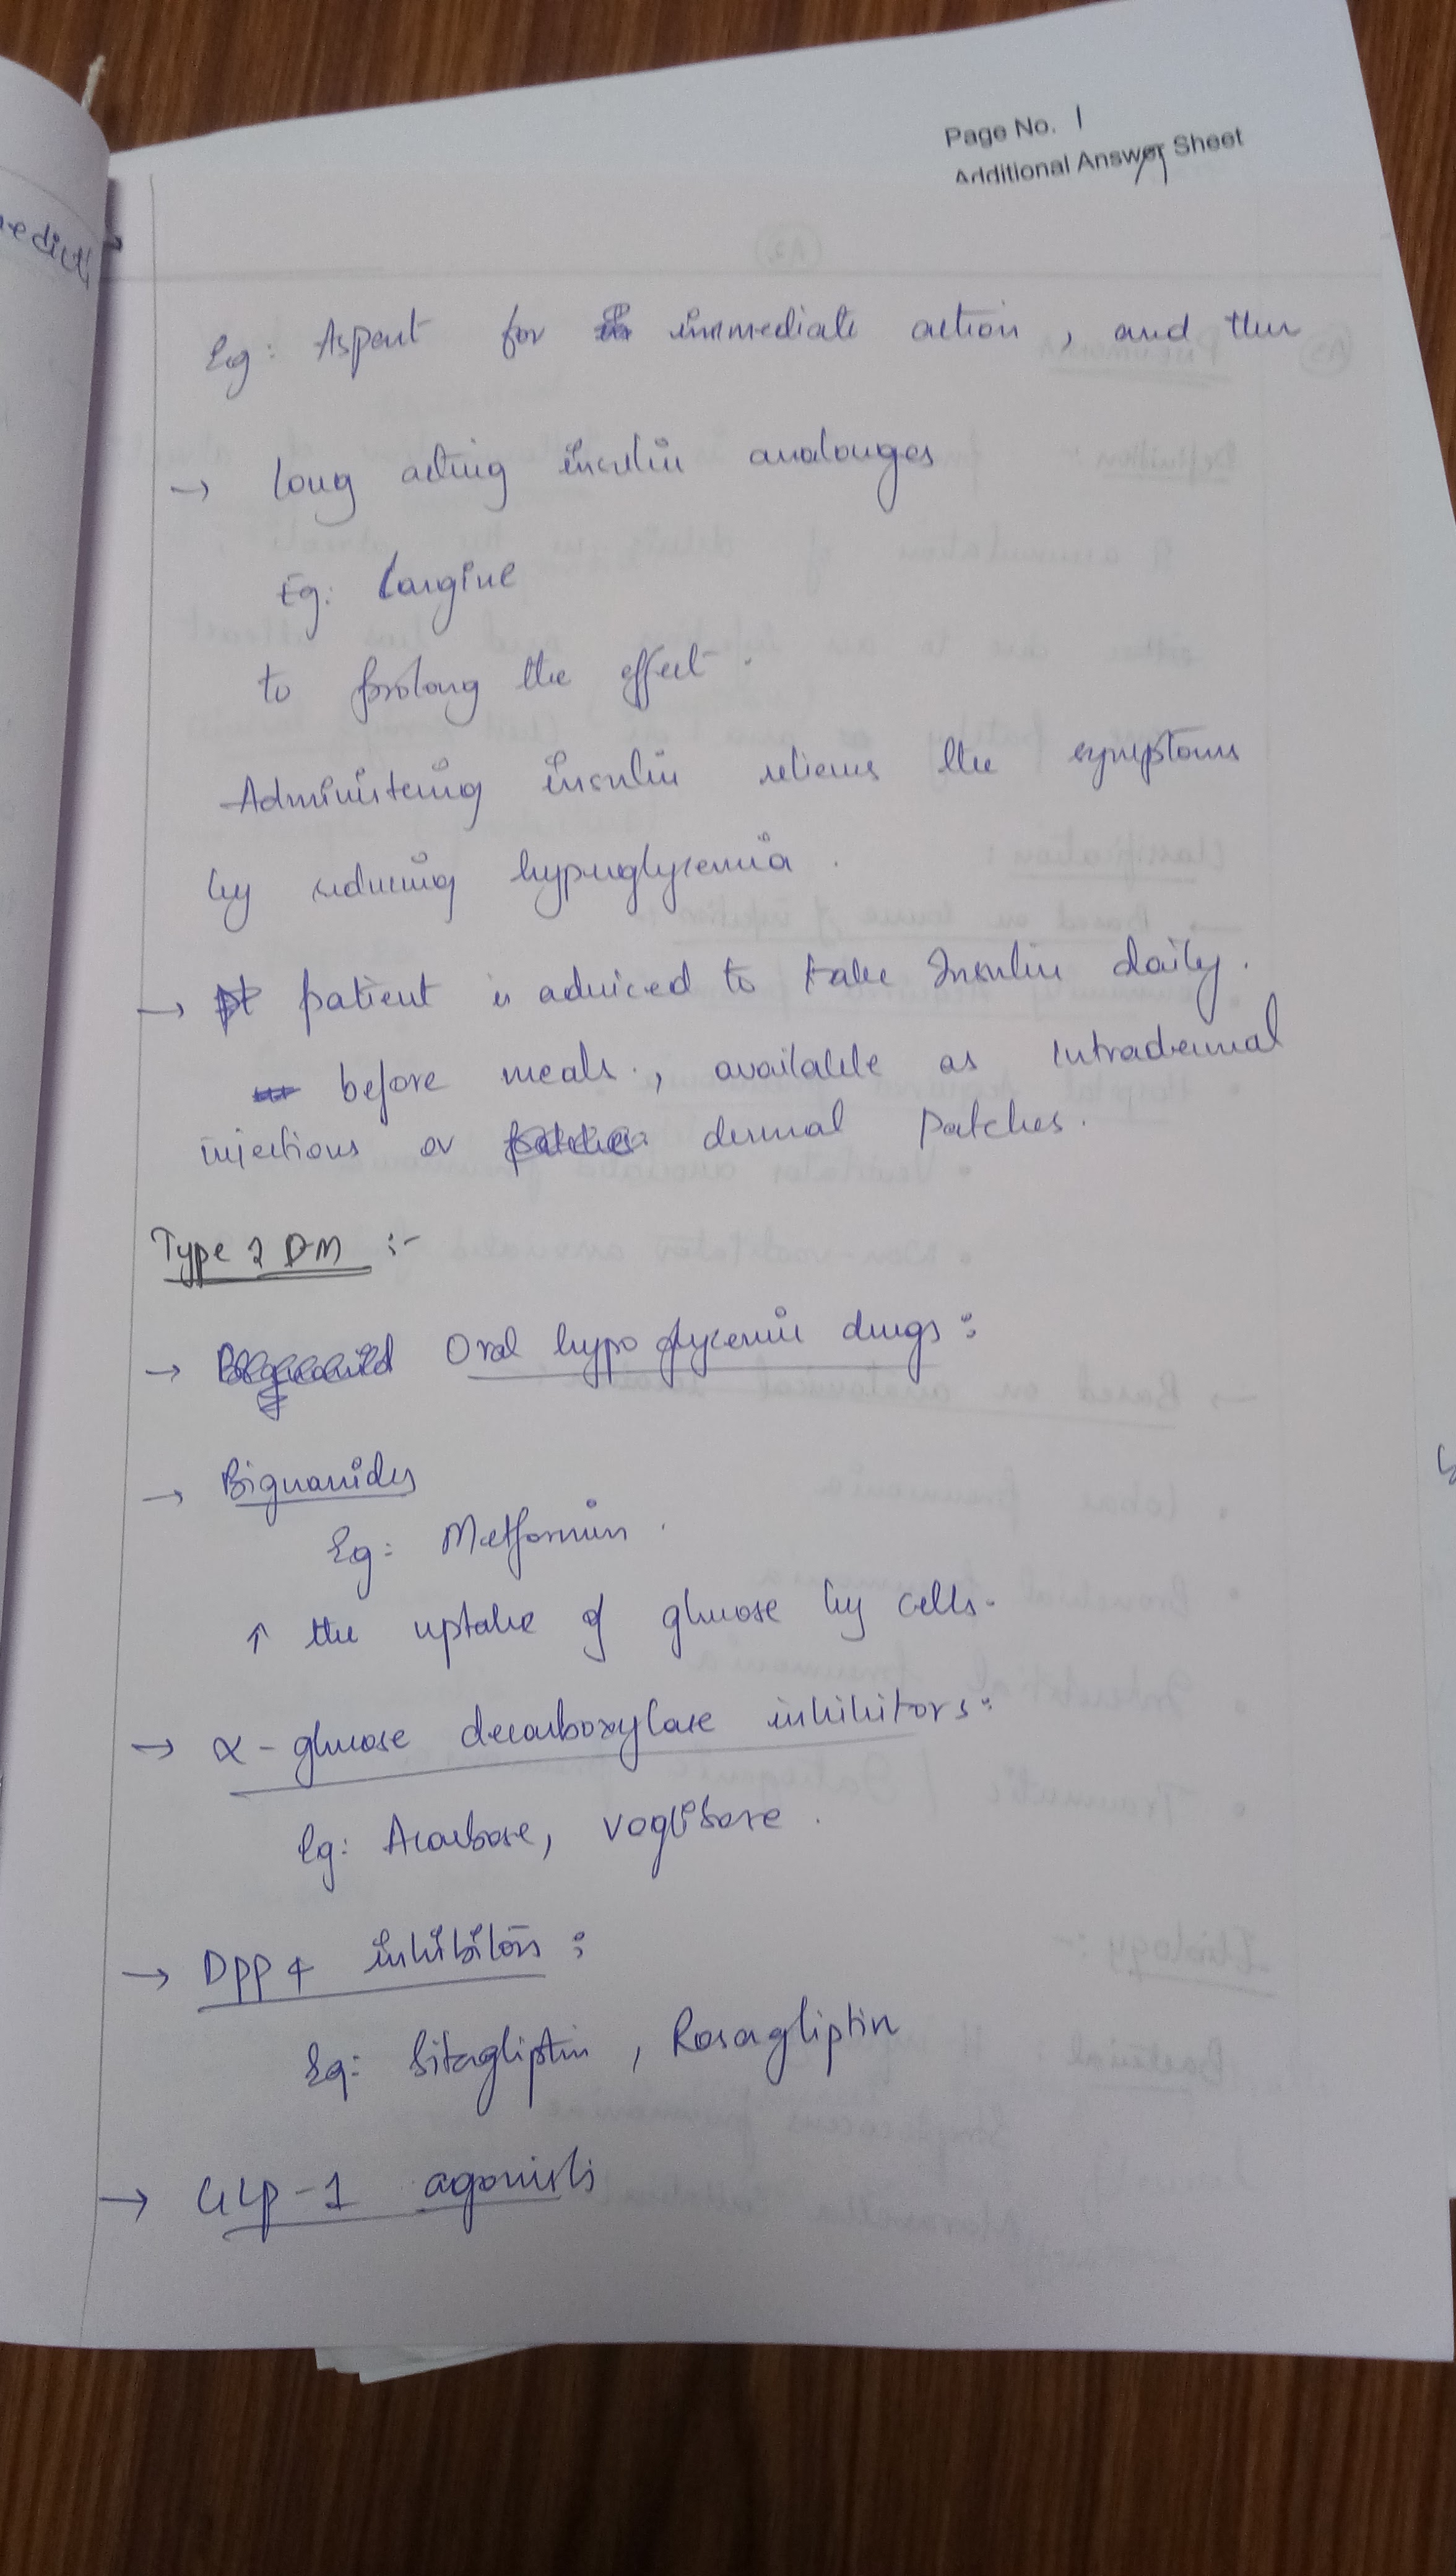 Page No. 1
Additional Answer Sheet
Eg: Aspart for immediate action, and then
→ Long acting insulin analouges
Eg: Largine
to prolong the effect.
Administering insulin relieves the symptoms
by reducing hyperglycemia.
→ patient is adviced to take Insulin daily.
before meals., available as Intradermal
injections or dermal patches.
Type 2 DM :-
→ Oral hypoglycemic drugs:
→ Biguanides
Eg: Metformin.
↑ the uptake of glucose by cells.
→ α-glucose decarboxylase inhibitors:
Eg: Acarbose, Voglibose.
→ DPP4 inhibitors:
Eg: Sitagliptin, Rosagliptin
→ GLP-1 agonists